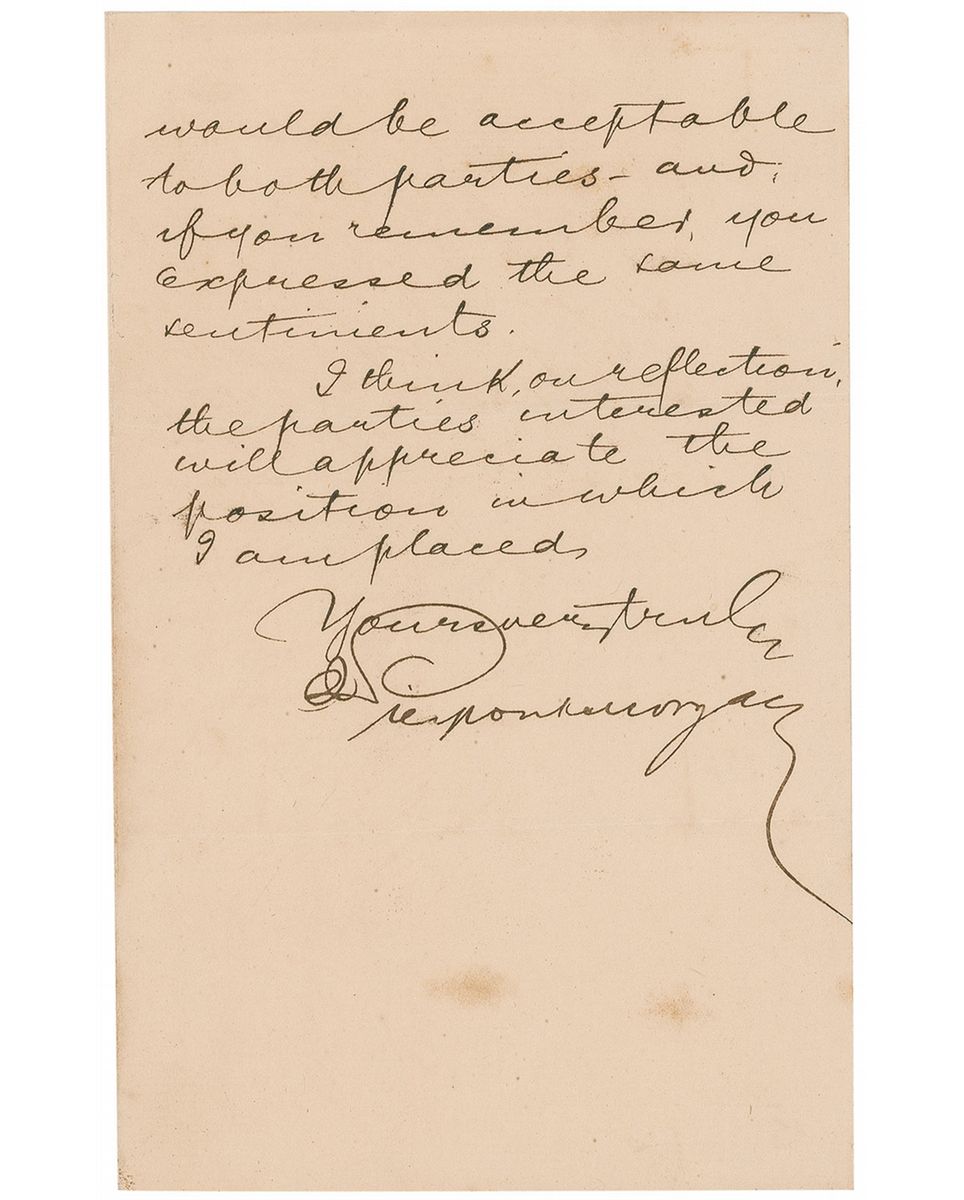 would be acceptable
to both parties - and,
if you remember, you
expressed the same
sentiments.
I think, on reflection,
the parties interested
will appreciate the
position in which
I am placed,
Yours very truly
J Pierpont Morgan